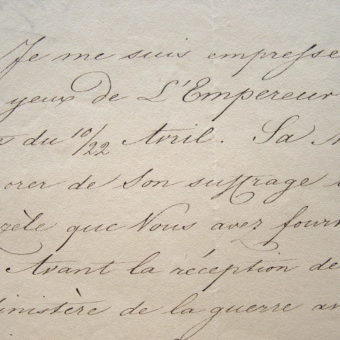 Je me suis empresse
yeux de L'Empereur
du 10/22 Avril. Sa
orer de Son suffrage
zèle que Vous avez fourn
Avant la réception de
inistère de la guerre